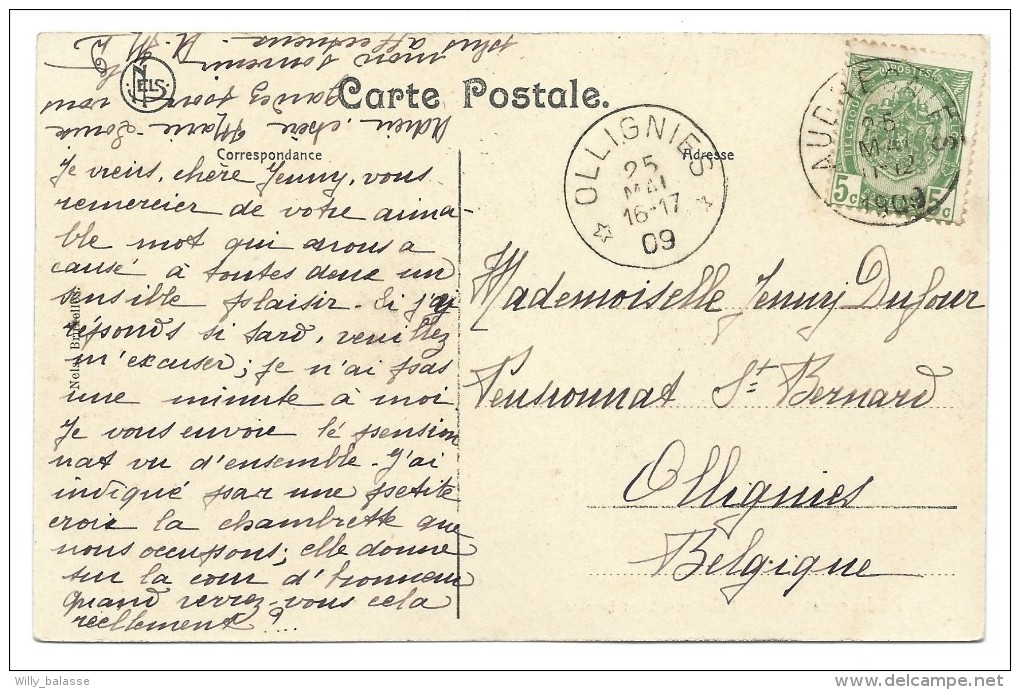 Carte Postale.
NELS
Correspondance
Adresse
Je viens, chère Jenny, vous
remercier de votre aima-
ble mot qui nous a
causé à toutes deux un
sensible plaisir. Si j'y
réponds si tard, veuillez
m'excuser; je n'ai pas
une minute à moi
Je vous envoie lé pension
nat vu d'ensemble. J'ai
indiqué par une petite
croix la chambrette que
nous occupons; elle donne
sur la cour d'honneur
Quand verrez-vous cela
réellement?...
Adieu, chère Marie-Louise
gardez pour vous
mon souvenir le
plus affectueux.
Nels, Bruxelles.
OLLIGNIES
25
MAI
16-17
09
25
MAI
11-12
1909
POSTES
BELGIQUE
5c 5c
Mademoiselle Jenny Dufour
Pensionnat St Bernard
Ollignies
Belgique
Willy_balasse
www.delcampe.net